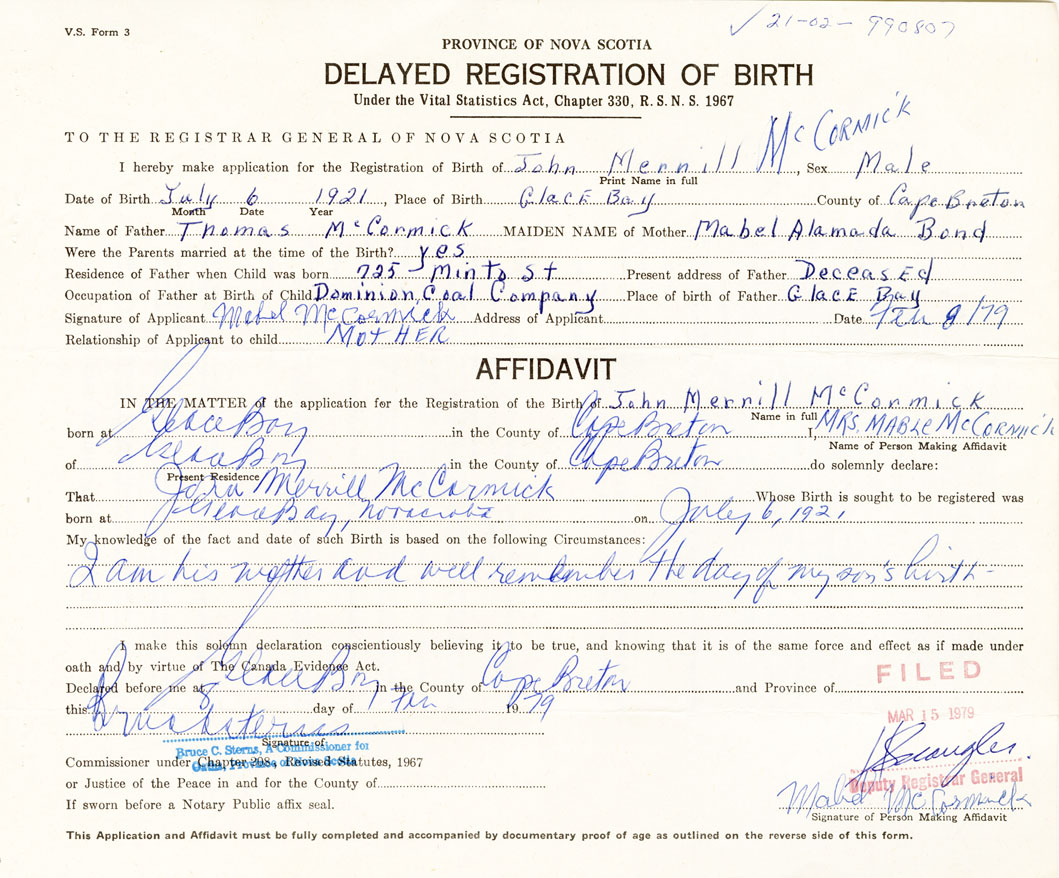 V.S. Form 3
✓ 21-02- 990807
PROVINCE OF NOVA SCOTIA
DELAYED REGISTRATION OF BIRTH
Under the Vital Statistics Act, Chapter 330, R.S.N.S. 1967
TO THE REGISTRAR GENERAL OF NOVA SCOTIA
I hereby make application for the Registration of Birth of John Merrill McCORMICK, Sex Male
Print Name in full
Date of Birth July 6 1921, Place of Birth GlacE Bay County of Cape Breton
Month Date Year
Name of Father Thomas McCormick MAIDEN NAME of Mother Mabel Alamada Bond
Were the Parents married at the time of the Birth? yes
Residence of Father when Child was born 725 - Minto St Present address of Father DeceasEd
Occupation of Father at Birth of Child Dominion Coal Company Place of birth of Father GlacE Bay
Signature of Applicant Mabel McCormick Address of Applicant Date 8/79
Relationship of Applicant to child MotHER
AFFIDAVIT
IN THE MATTER of the application for the Registration of the Birth of John Merrill McCormick
Name in full
born at Glace Bay in the County of Cape Breton I, MRS. MABLE McCORMICK
Name of Person Making Affidavit
of Glace Bay in the County of Cape Breton do solemnly declare:
Present Residence
That John Merrill McCormick Whose Birth is sought to be registered was
born at Glace Bay, Nova Scotia on July 6, 1921
My knowledge of the fact and date of such Birth is based on the following Circumstances:
I am his mother and well remember the day of my son's birth -
I make this solemn declaration conscientiously believing it to be true, and knowing that it is of the same force and effect as if made under
oath and by virtue of The Canada Evidence Act.
Declared before me at Glace Bay in the County of Cape Breton and Province of
this day of 1979
FILED
MAR 15 1979
Signature of
Bruce C. Sterns, A Commissioner for
Oaths, Province of Nova Scotia
Commissioner under Chapter 298, Revised Statutes, 1967
or Justice of the Peace in and for the County of
Deputy Registrar General
If sworn before a Notary Public affix seal.
Mabel McCormick
Signature of Person Making Affidavit
This Application and Affidavit must be fully completed and accompanied by documentary proof of age as outlined on the reverse side of this form.